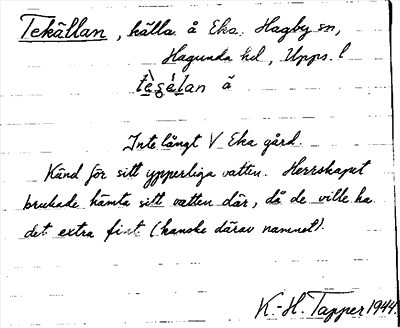 Tekällan, källa å Eka. Hagby sn,
Hagunda hd, Upps. l
Inte långt V Eka gård.
Känd för sitt ypperliga vatten. Herrskapet
brukade hämta sitt vatten där, då de ville ha
det extra fint (kanske därav namnet).
K.-H. Tapper 1944.